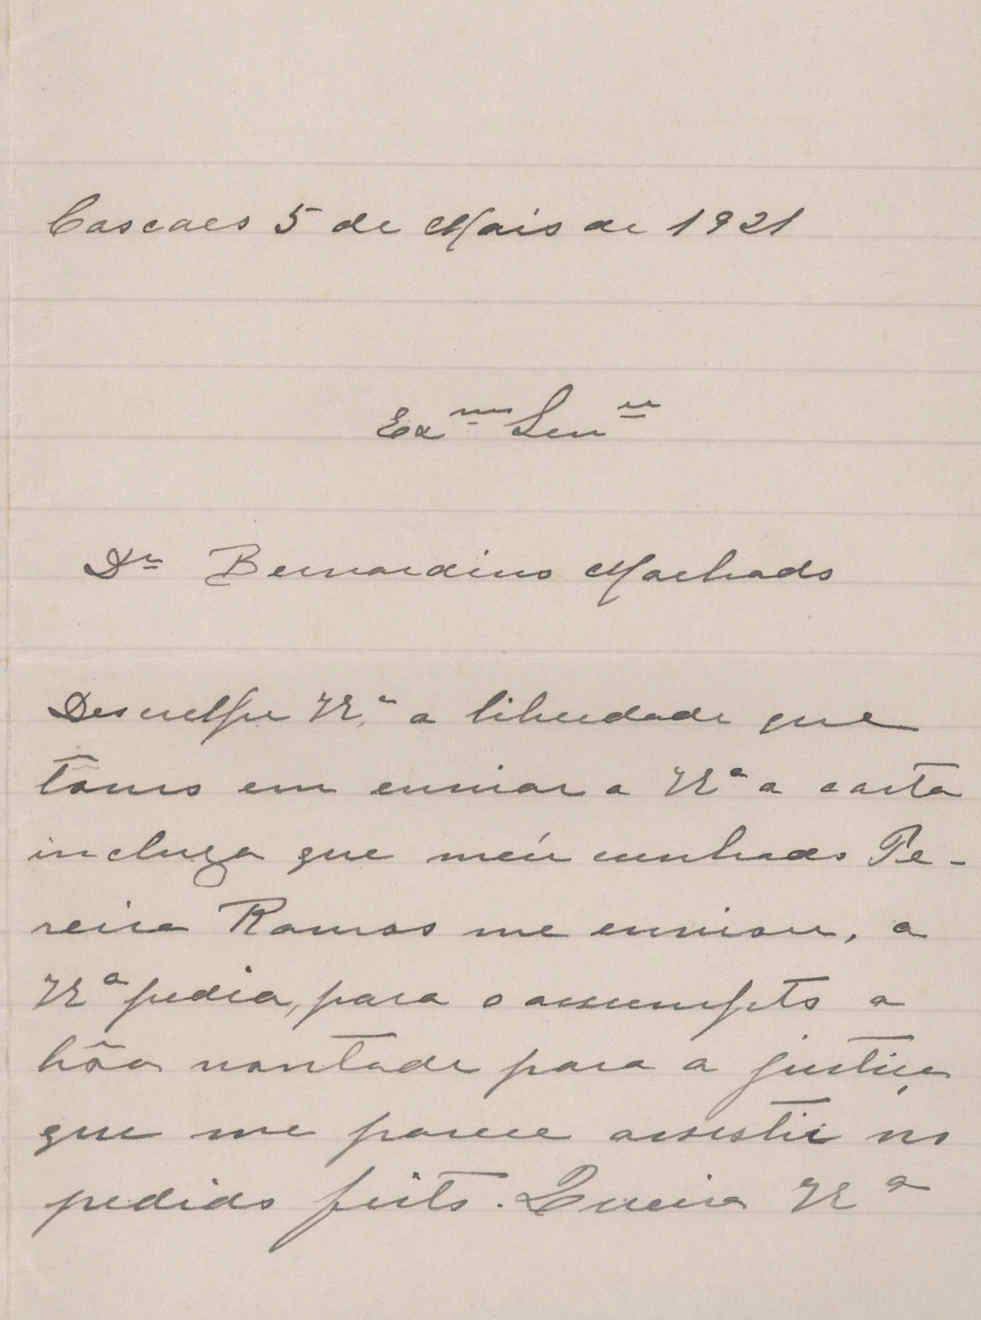 Cascaes 5 de Maio de 1921
Exmo Senr
Dr Bernardino Machado
Desculpe V.ª a liberdade que
tomo em enviar a Vª a carta
incluza que meu cunhado Pe-
reira Ramos me enviou, a
Vª pedia, para o assumpto a
bôa vontade para a justiça
que me parece assistir no
pedido feito. Queira Vª